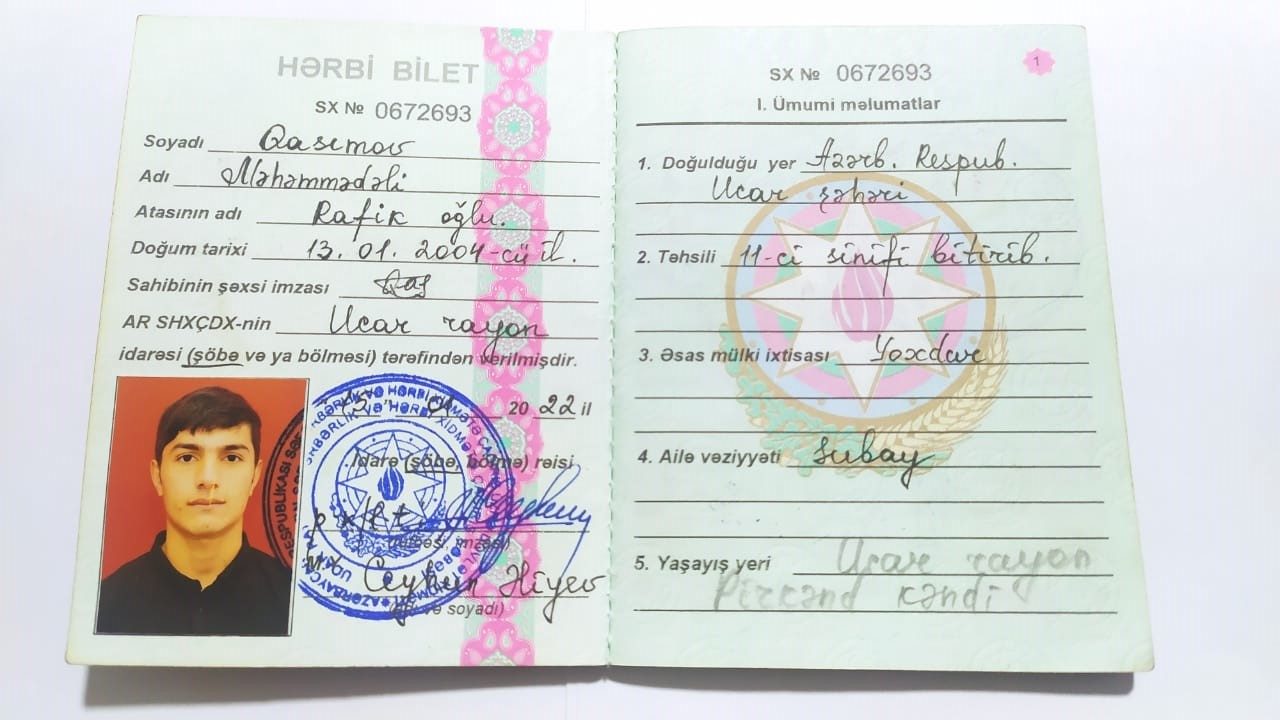 HƏRBİ BİLET
SX № 0672693
Soyadı Qasımov
Adı Məhəmmədəli
Atasının adı Rafik oğlu.
Doğum tarixi 13.01.2004-cü il.
Sahibinin şəxsi imzası
AR SHXÇDX-nin Ucar rayon
idarəsi (şöbə və ya bölməsi) tərəfindən verilmişdir.
20 22 il
İdarə (şöbə, bölmə) rəisi
M.Y.
Ceyhun Əliyev
(adı və soyadı)
SX № 0672693
1
I. Ümumi məlumatlar
1. Doğulduğu yer Azərb. Respub.
Ucar şəhəri
2. Təhsili 11-ci sinifi bitirib.
3. Əsas mülki ixtisası Yoxdur
4. Ailə vəziyyəti Subay
5. Yaşayış yeri Ucar rayon
Pirkənd kəndi